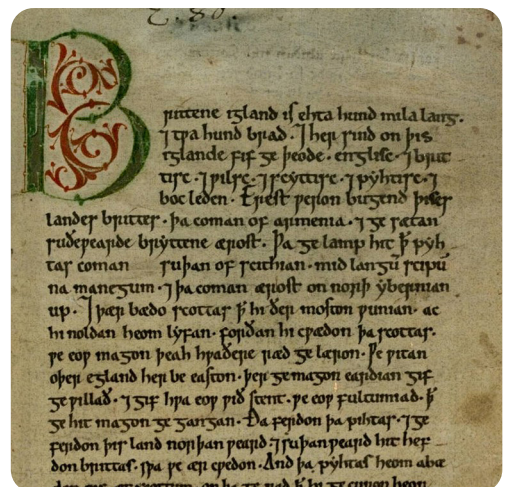 Brittene igland is ehta hund mila lang.
⁊ tƿa hund brad. ⁊ her sind on þis
iglande fif ge þeode. englisc. ⁊ brit
tisc. ⁊ ƿilsc. ⁊ scyttisc. ⁊ pyhtisc. ⁊
boc leden. Erest ƿeron bugend þises
landes brittes. þa coman of armenia. ⁊ ge sætan
suðeƿearde bryttene ærost. Þa ge lamp hit ꝥ pyh
tas coman suþan of scithian. mid langū scipū
na manegum. ⁊ þa coman ærost on norþ ybernian
up. ⁊ þær bædo scottas ꝥ hi ðer moston ƿunian. ac
hi noldan heom lyfan. forðan hi cƿædon þa scottas.
ƿe eoƿ magon þeah hƿaðere ræd ge læron. Ƿe ƿitan
oþer egland her be easton. þer ge magon eardian gif
ge ƿillað. ⁊ gif hƿa eoƿ ƿið stent. ƿe eoƿ fultumiað. ꝥ
ge hit magon ge gangan. Ða ferdon þa pihtas. ⁊ ge
ferdon þis land norþan ƿeard. ⁊ suþanƿeard hit hef
don brittas. sƿa ƿe ær cƿedon. And þa pyhtas heom abæ